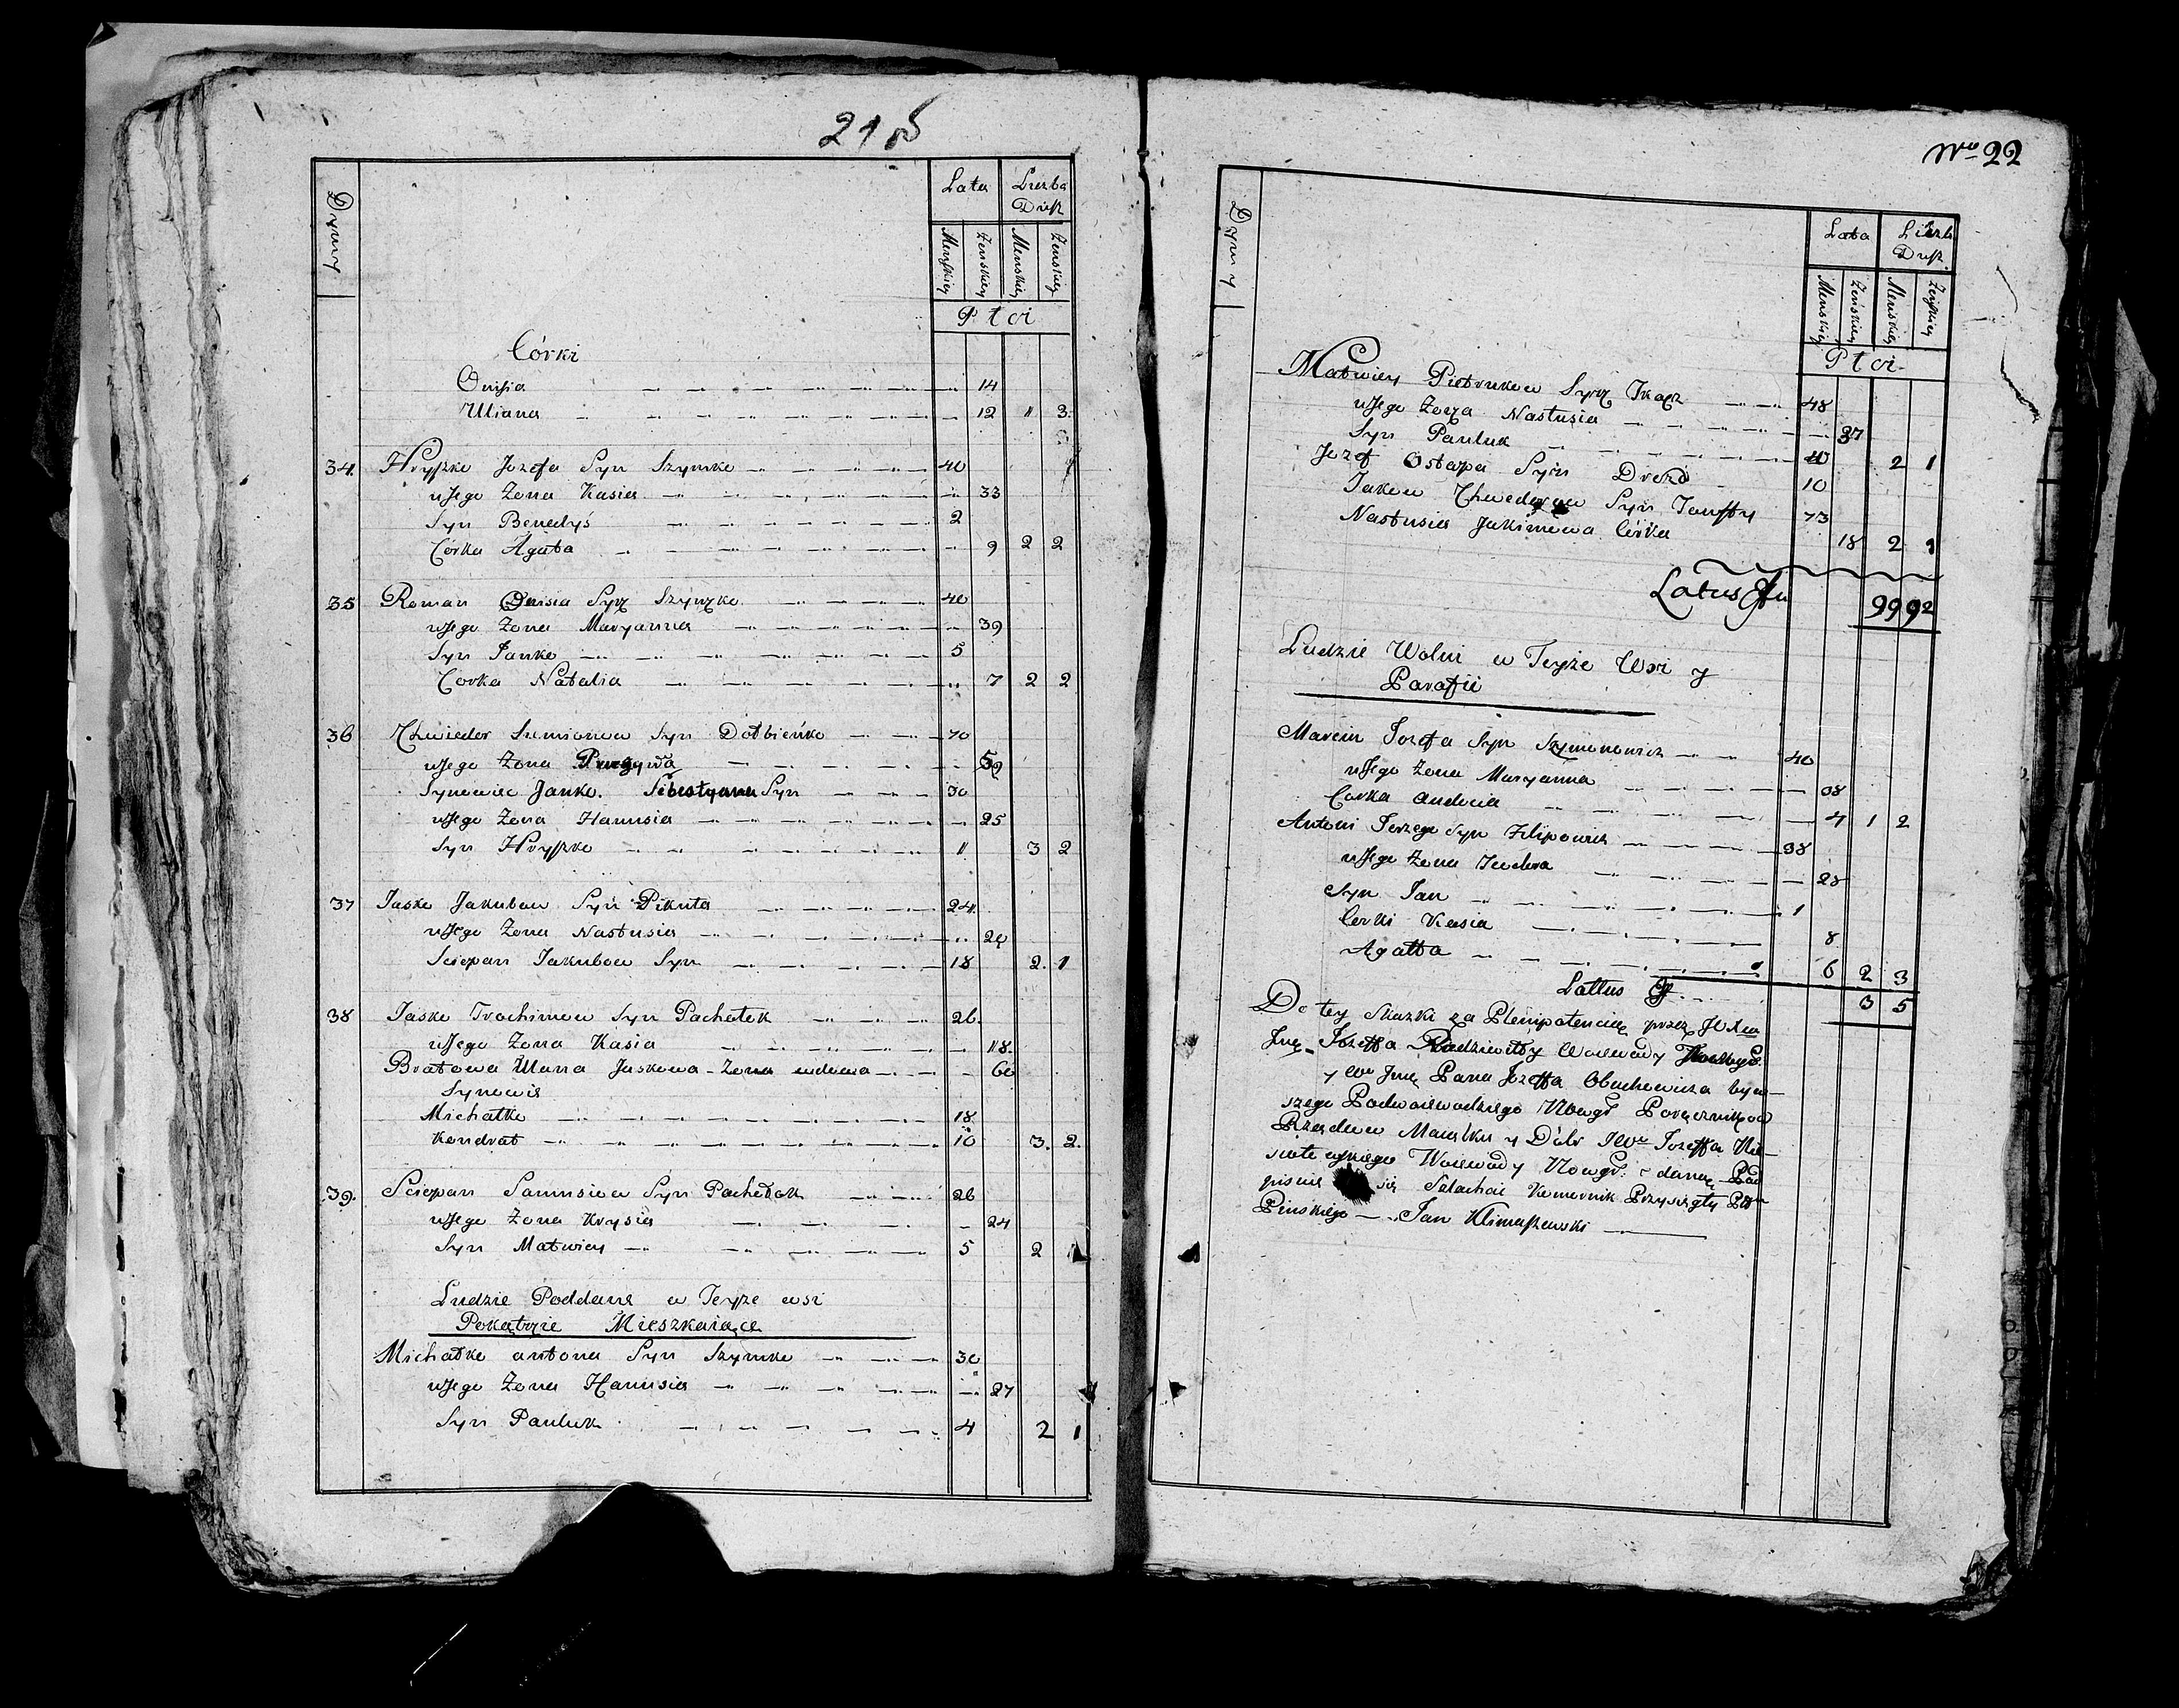 21
Dymy
Lata Liczba
Dusz
Menskiey Żenskiey Menskiey Żenskiey
Płci
Córki
Onisia 14
Uliana 12 " 3
34. Hryszko Jozefa Syn Szymko 40
u Jego Żona Kasia 33
Syn Benedyś 2
Córka Agata 9 2 2
35 Roman Onisia Syn Szymko 40
u Jego Żona Maryanna 39
Syn Janko 5
Corka Natalia 7 2 2
36 Chwiedor Siemionow Syn Dołbieńko 70
u Jego Żona 59
Synowiec Janko. Sebestyana Syn 30
u Jego Żona Hanusia 25
Syn Hryszko " 3 2
37 Jasko Jakubow Syn Pikuta 24
u Jego Żona Nastusia 20
Sciepan Jakubow Syn 18 2. 1
38 Jasko Trochimow Syn Pachołek 26.
u Jego Żona Kasia 18.
Bratowa Ulana Jaskowa Żona wdowa 60
Synowie
Michałko 18
Kondrat 10 3. 2.
39. Sciepan Samusiow Syn Pachołek 26
u Jego Żona Krysia 24
Syn Matwiey 5 2
Ludzie Poddane w Teyze wsi
Pokątnie Mieszkaiące
Michałko antona Syn Szymko 30
u Jego Żona Hanusia 27
Syn Pauluk 4 2 1
No 22
Dymy
Lata Liczb
Dusz.
Menskiey Żeńskiey Menskiey Żenskiey
Płci
Matwiey Pietrukow Syn Tkacz 48
u Jego Żona Nastusia 37
Syn Pauluk 10 2 1
Jozef Ostapa Syn Drozd 10
Jakow Chwedorow Syn 73
Nastusia Jakimowa Córka 18 2 1
Latus 99 92
Ludzie Wolni w Teyże Wsi y
Parafii
Marcin Jozefa Syn Szymonowicz 40
u Jego Żona Maryanna 38
Corka Audocia 4 1 2
Antoni Jerzego Syn Filipowicz 38
u Jego Żona Teodora 28
Syn Jan 1
Corki Kasia 8
Agatta 6 2 3
Lattus 3 5
Do tey Skazki za Plenipotencią przez JWXcia
Jmę Jozeffa Radziwiłły Woiewody
y Wo Jmę Pana Jozeffa Obuchowicza byw-
szego Podwoiewodziego Nowgr. Poręcznikow
Rządow Maiątku y Dóbr JWo Jozeffa Nie-
siołowskiego Woiewody Nowgr. daną Pod
pisuię się Szlachcic Komornik Przysięgły Ptu
Pinskiego Jan Klimaszewski